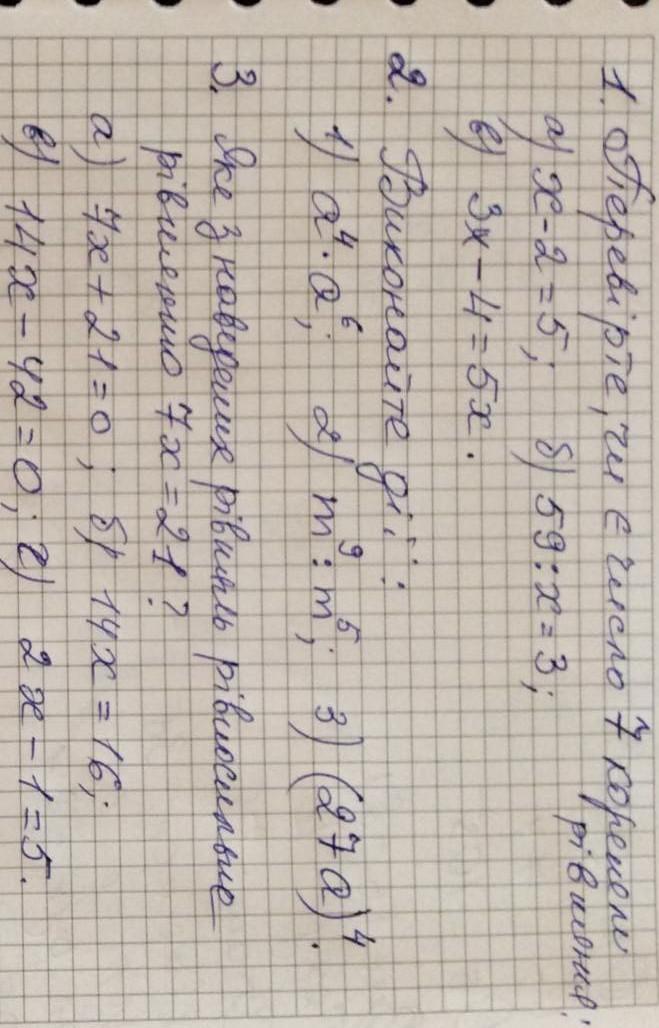 1. Перевірте, чи є число 7 коренем
рівняння:
а) x - 2 = 5; б) 59 : x = 3;
в) 3x - 4 = 5x.
2. Виконайте дії:
1) a⁴ · a⁶; 2) m⁹ : m⁵; 3) (27a)⁴.
3. Яке з наведених рівнянь рівносильне
рівнянню 7x = 21?
а) 7x + 21 = 0; б) 14x = 16;
в) 14x - 42 = 0; г) 2x - 1 = 5.